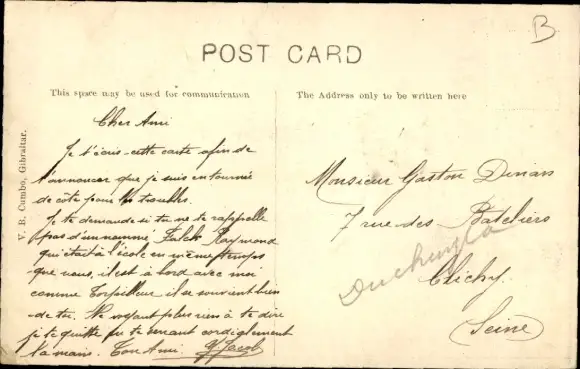 B
POST CARD
This space may be used for communication
The Address only to be written here
V. B. Cumbo, Gibraltar.
Cher Ami
Je t'écris cette carte afin de
t'annoncer que je suis en tournée
de côté pour les troubles.
Je te demande si tu ne te rappelle
pas d'un nommé Falck Raymond
qui était à l'école en même temps
que nous, il est à bord avec moi
comme Torpilleur il se souvient bien
de toi. Ne voyant plus rien à te dire
je te quitte en te serrant cordialement
la main. Ton Ami. G. Jacob
Monsieur Gaston Dinan
7 rue des Bateliers
Clichy
(Seine)